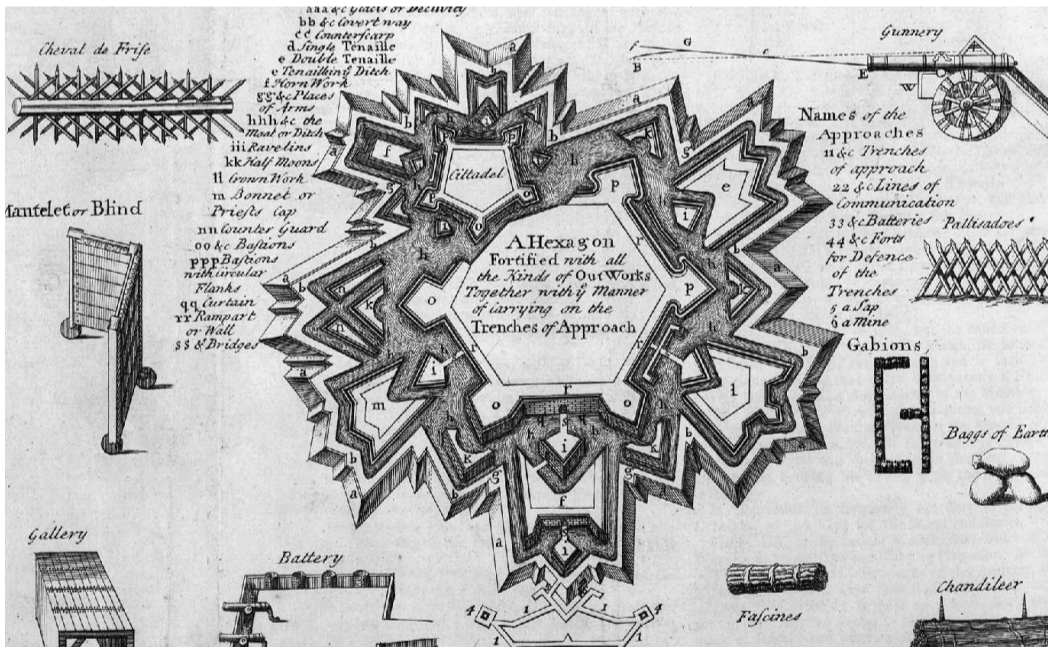 aaa &c Glacis or Declivity
bb &c Covert way
cc Counterscarp
d Single Tenaille
e Double Tenaille
e Tenailking Ditch
f Horn Work
gg &c Places
of Arms
hhh &c the
Moat or Ditch
iii Ravelins
kk Half Moons
ll Crown Work
m Bonnet or
Priests Cap
nn Counter Guard
oo &c Bastions
ppp Bastions
with circular
Flanks
qq Curtain
rr Rampart
or Wall
ss & Bridges
Cheval de Frise
Mantelet or Blind
Gallery
Battery
Cittadel
A Hexagon
Fortified with all
the Kinds of Out Works
Together with ye Manner
of carrying on the
Trenches of Approach
Gunnery
Names of the
Approaches
11 &c Trenches
of approach
22 &c Lines of
Communication
33 &c Batteries
44 &c Forts
for Defence
of the
Trenches
5 a Sap
6 a Mine
Pallisadoes
Gabions,
Baggs of Earth
Fascines
Chandileer